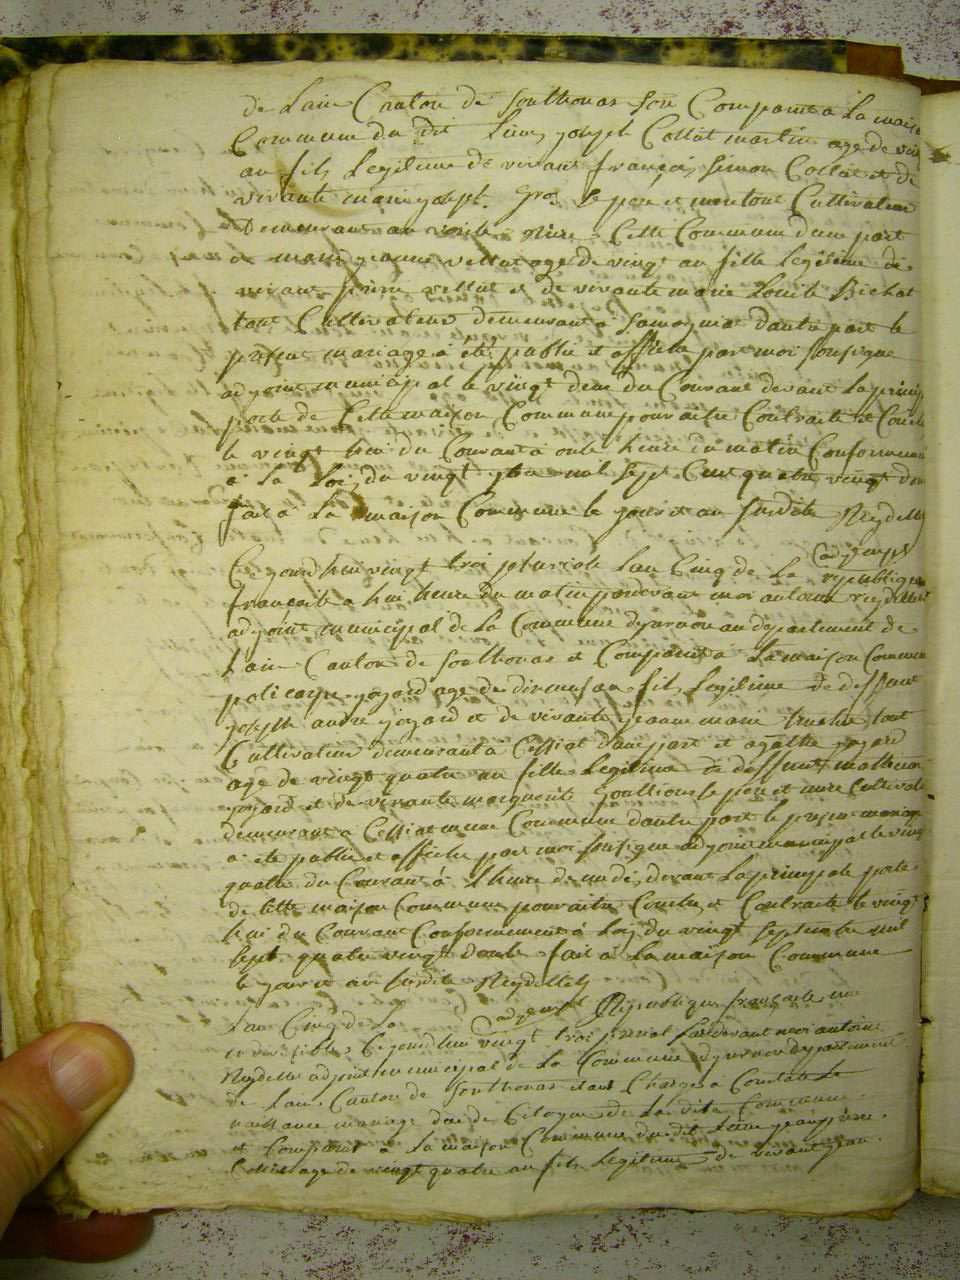 de Lain Canton de Sonthonas son Comparut a La maison
Commune du dit Lieu joseph Collet martin age de vin
an fils Legitime de vivant françois simon Collet et de
vivante marie joseph Gros le pere et mere tout Cultivateur
Demeurant au voile Cette Commune dune part
et marie jeanne vellut age de vingt an fille Legitime de
vivant pierre vellut et de vivante marie Louise Bichat
tout Cultivateur demeurant a Samognat dautre part le
present mariage a été publie et affiche par moi sousigne
adjoint municipal le vingt deux du Courant devant La princip
porte de Cette maison Commune pour aitre Contracte et Conclu
le vingt hui du Courant a onse heure du matin Conformem
a La Loi du vingt 7bre mil sept Cent quatre vingt dou
fait a La maison Commune le jour et an susdite Reydellet
adjoint
Ce jourdhui vingt troi pluviose Lan Cinq de La republique
française a hui heure du matin pardevant moi antoine reydellet
adjoint municipal de La Commune dyzernore au departement de
Lain Canton de Sonthonas et Comparut a La maison Commune
policarpe jozard age de dixneuf an fils Legitime de deffunt
joseph andre jozard et de vivante jeanne marie tout
Cultivateur demeurant a Cessiat dune part et agathe jozard
age de vingt quatre an fille Legitime de deffunt
jozard et de vivante marguerite Goultions le pere et mere Cultivate
demeurant a Cessiat meme Commune dautre part le present mariage
a ete publie et affiche par moi sousigne adjoint municipal le vingt
quatre du Courant a Lheure de midi devant La principale porte
de Cette maison Commune pour aitre Conclu et Contracte le vingt
hui du Courant Conformement a Loi du vingt septembre mil
sept quatre vingt douse fait a La maison Commune
le jour et an susdite Reydellet
adjoint
Lan Cinq de La Republique française une
indivisible Ce jourdhui vingt troi pardevant moi antoine
Reydellet adjoint municipal de La Commune dyzernore departement
de Lain Canton de Sonthonas etant Charge a Constate Le
naissance mariage de Citoyen de La dite Commune
et Comparut a La maison Commune du dit Lieu jean pierre
Collet age de vingt quatre an fils Legitime de vivant jean